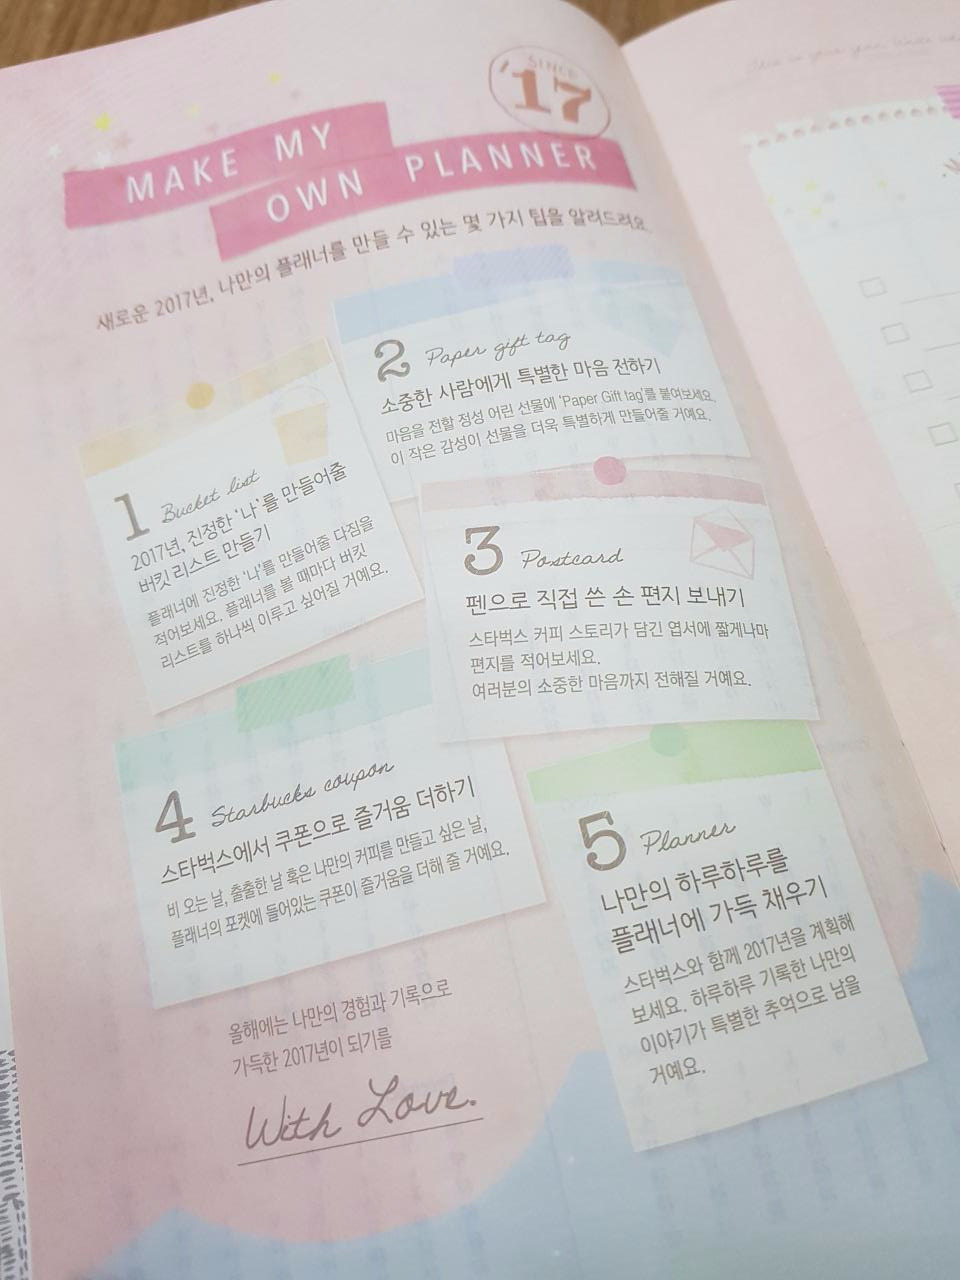 SINCE
'17
MAKE MY
OWN PLANNER
새로운 2017년, 나만의 플래너를 만들 수 있는 몇 가지 팁을 알려드려요.
1 Bucket list
2017년, 진정한 '나'를 만들어줄
버킷 리스트 만들기
플래너에 진정한 '나'를 만들어줄 다짐을
적어보세요. 플래너를 볼 때마다 버킷
리스트를 하나씩 이루고 싶어질 거예요.
2 Paper gift tag
소중한 사람에게 특별한 마음 전하기
마음을 전할 정성 어린 선물에 'Paper Gift tag'를 붙여보세요.
이 작은 감성이 선물을 더욱 특별하게 만들어줄 거예요.
3 Postcard
펜으로 직접 쓴 손 편지 보내기
스타벅스 커피 스토리가 담긴 엽서에 짧게나마
편지를 적어보세요.
여러분의 소중한 마음까지 전해질 거예요.
4 Starbucks coupon
스타벅스에서 쿠폰으로 즐거움 더하기
비 오는 날, 출출한 날 혹은 나만의 커피를 만들고 싶은 날,
플래너의 포켓에 들어있는 쿠폰이 즐거움을 더해 줄 거예요.
5 Planner
나만의 하루하루를
플래너에 가득 채우기
스타벅스와 함께 2017년을 계획해
보세요. 하루하루 기록한 나만의
이야기가 특별한 추억으로 남을
거예요.
올해에는 나만의 경험과 기록으로
가득한 2017년이 되기를
With Love.